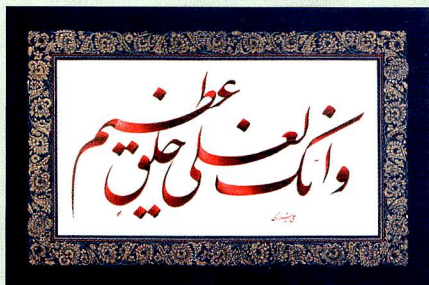 وانک لعلی خلق عظیم